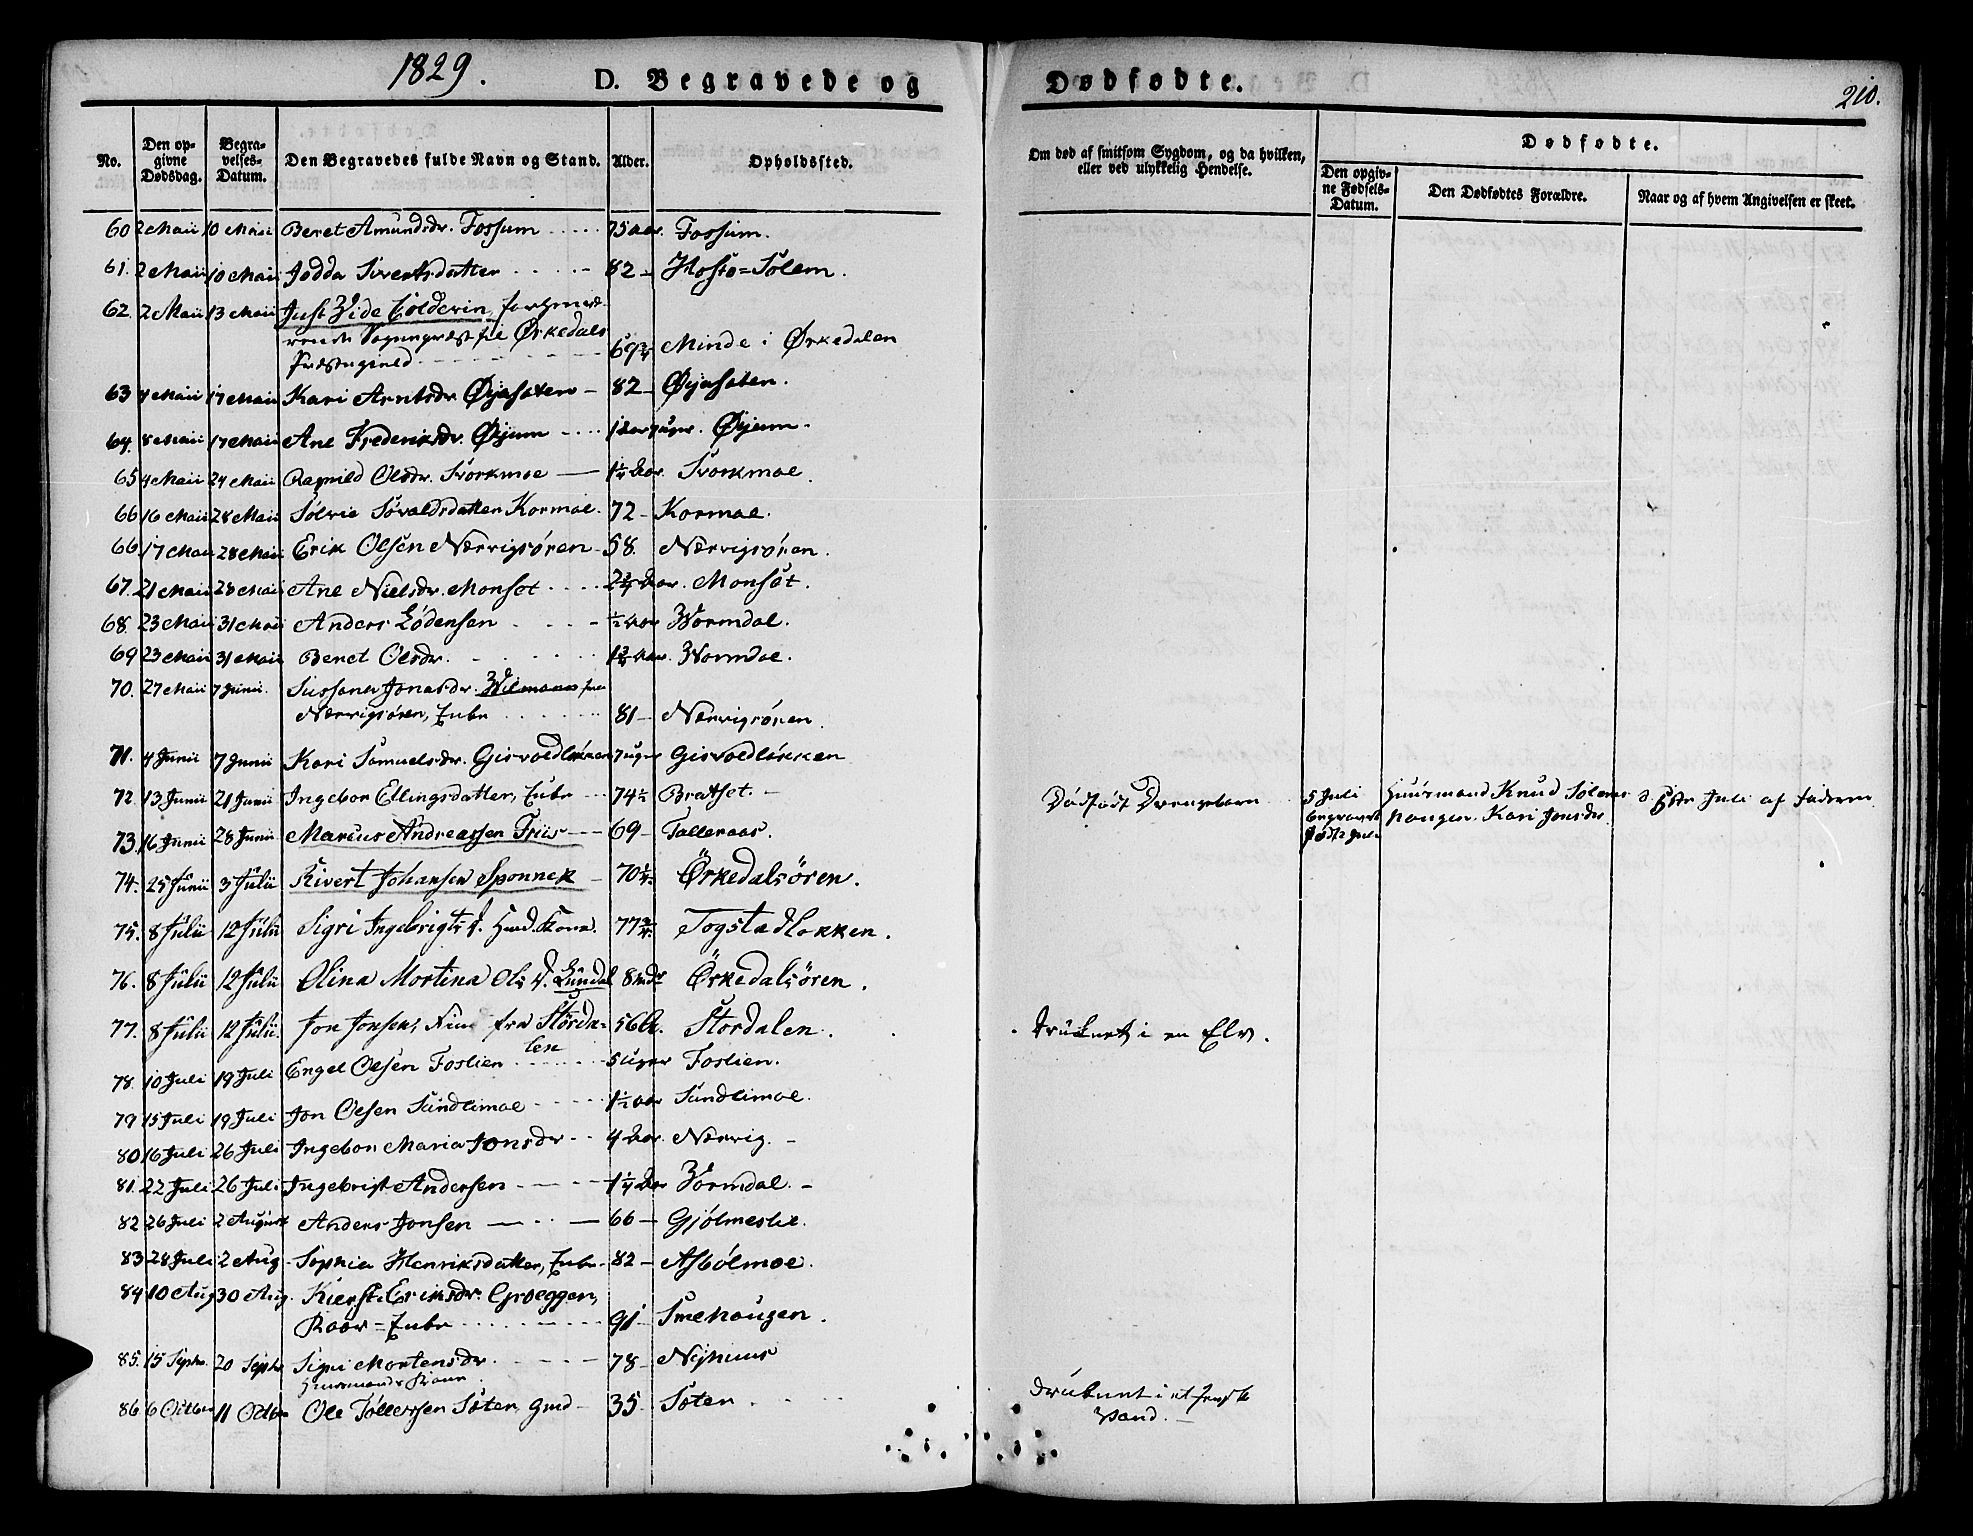 1829.
D. Begravede og
Dødfødte.
210.
No.
Den opgivne Dødsdag.
Begravelses-Datum.
Den Begravedes fulde Navn og Stand.
Alder.
Opholdssted.
Om død af smitsom Sygdom, og da hvilken, eller ved ulykkelig Hendelse.
Dødfødte.
Den opgivne Fødsels-Datum.
Den Dødfødtes Forældre.
Naar og af hvem Angivelsen er skeet.
60 2 Maii 10 Maii Beret Amundsdr. Fossum 75 aar. Fossum.
61. 2 Maii 10 Maii Jødda Sivertsdatter 82 Hosto=Solem.
62. 2 Maii 13 Maii Just Wide Colderin,
Sognepræst til Ørkedals
Præstegield 69 3/4 Minde i Ørkedalen
63 4 Maii 17 Maii Kari Arntsdr Øyasæten 82 Øyasæten.
64. 8 Maii 17 Maii Ane Frederiksdr. Øyum Øyum.
65 4 Maii 24 Maii Ragnild Olsdr. Svorkmoe 1 1/4 Aar. Svorkmoe.
66 16 Maii 28 Maii Kormoe. 72 Kormoe.
66 17 Maii 28 Maii Erik Olsen Nærvigsøren 58. Nærvigsøren.
67. 21 Maii 28 Maii Ane Nielsdr. Monset 2 3/4 Aar. Monset.
68. 23 Maii 31 Maii Anders Lødensen 1/2 aar Wormdal.
69 23 Maii 31 Maii Beret Olsdr. 1 3/4 aar. Wormdal.
70. 27 Maii 7 Junii. Sussana Jonasdr. Wilmann fra
Nærvigsøren, Enke 81 Nærvigsøren.
71. 4 Junii 7 Junii Kari Samuelsdr. Gisvoldløkken 7 uger Gisvoldløkken
72. 13 Junii 21 Junii Ingebor Ellingsdatter, Enke 74 1/2 Bratset.
Dødfødt Drengebarn 5 Juli Huusmand Knud Solems
Kari Jonsdr. Juli af Faderen
73. 16 Junii 28 Junii Marcus Andreassen Friis 69 Talleraas.
74. 25 Junii 3 Julii Sivert Johansen Sponnek 70 1/4. Ørkedalsøren.
75. 8 Julii 12 Julii Sigri Ingebrigts d. Kone. 77 3/4. Togstadløkken.
76. 8 Julii 12 Julii Olina Mortina Ols d. Lundal 8 mdr Ørkedalsøren.
77. 8 Julii 12 Julii. Jon Jonsen, fra Størda-
len 56 Stordalen. druknet i en Elv.
78. 10 Juli 19 Juli Engel Olsen Foslien 5 uger Foslien.
79 15 Juli 19 Juli Jon Olsen Sundlimoe 1 1/2 aar Sundlimoe.
80 16 Juli 26 Juli Ingebor Maria Jonsdr 4 Aar. Nærvig.
81. 22 Juli 26 Juli Ingebrigt Andersen 1 1/4 Aar Wormdal.
82 26 Juli 2 August Anders Jonsen 66 Gjølmeslie.
83 28 Juli 2 Aug Sophia Henriksdatter, Enke 82 Asbølmoe.
84 10 Aug 30 Aug. Kierst. Eriksdr. Groeggen,
Enke 91 Smehaugen.
85. 15 Septr. 20 Septr Sigri Mortensdr. 78 Nyhuus
Huusmands Kone.
86 6 Octber 11 Octbr Ole Tollefsen Soten gmd 35 Soten. druknet i et fersk
Vand.